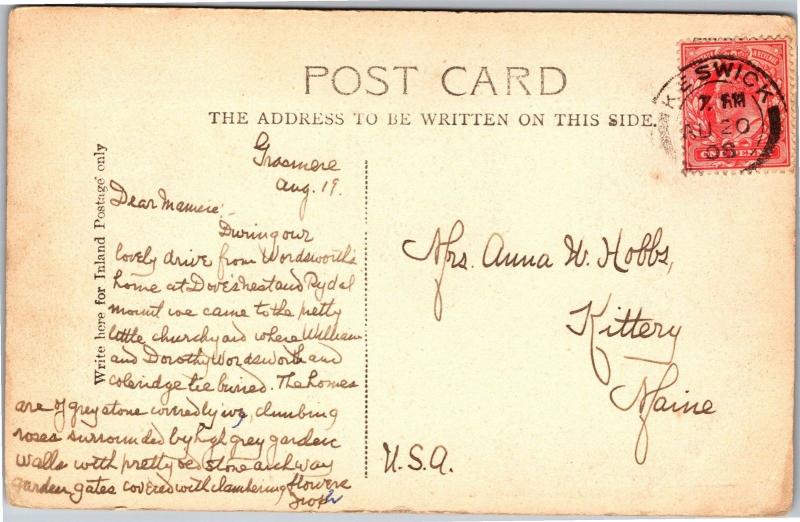 POST CARD
THE ADDRESS TO BE WRITTEN ON THIS SIDE.
KESWICK
7. AM
AU 20
08
Write here for Inland Postage only
Grasmere
Aug. 19.
Dear Mamere'
During our
lovely drive from Wordsworth's
home at Dove's nest and Rydal
mount we came to the pretty
little churchyard where William
and Dorothy Wordsworth and
Coleridge lie buried. The homes
are of grey stone covered by ivy, climbing
roses surrounded by high grey garden
walls with pretty stone archway
garden gates covered with clambering flowers
Mrs. Anna W. Hobbs,
Kittery
Maine
U.S.A.